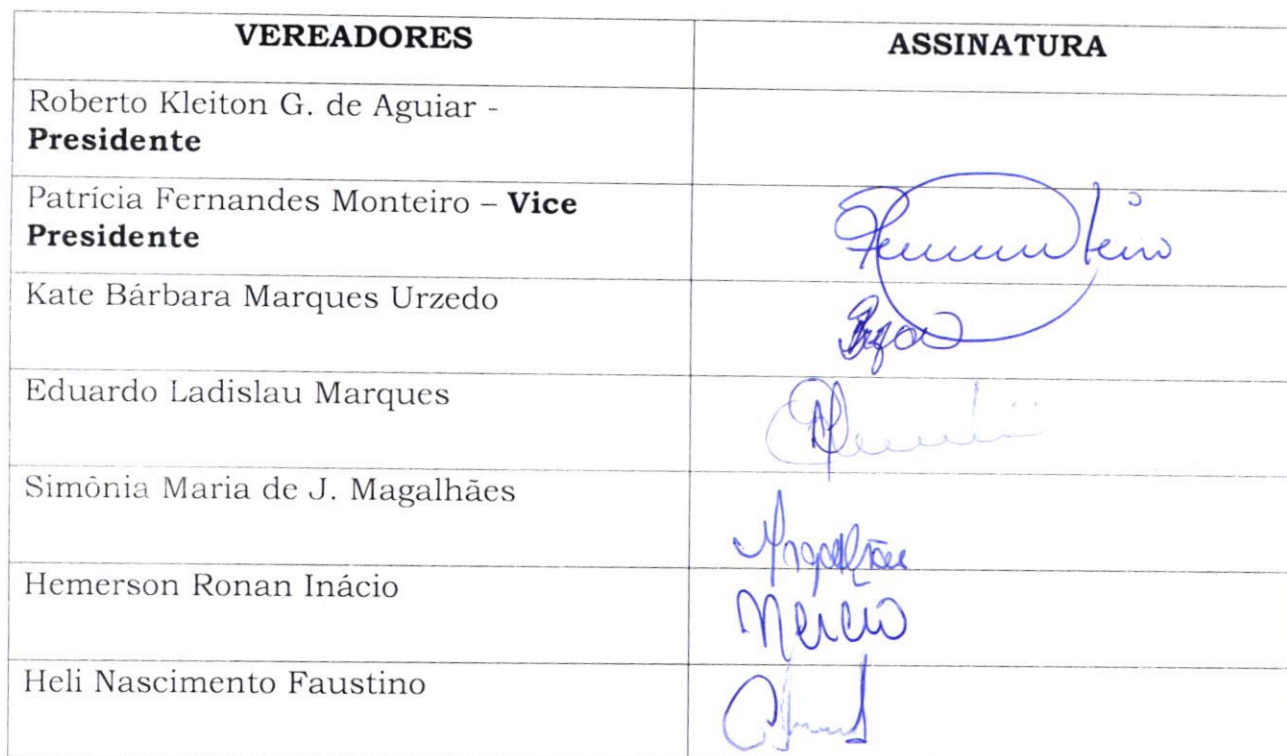 VEREADORES
ASSINATURA
Roberto Kleiton G. de Aguiar -
Presidente
Patrícia Fernandes Monteiro – Vice
Presidente
Kate Bárbara Marques Urzedo
Eduardo Ladislau Marques
Simônia Maria de J. Magalhães
Magalhães
Hemerson Ronan Inácio
Heli Nascimento Faustino